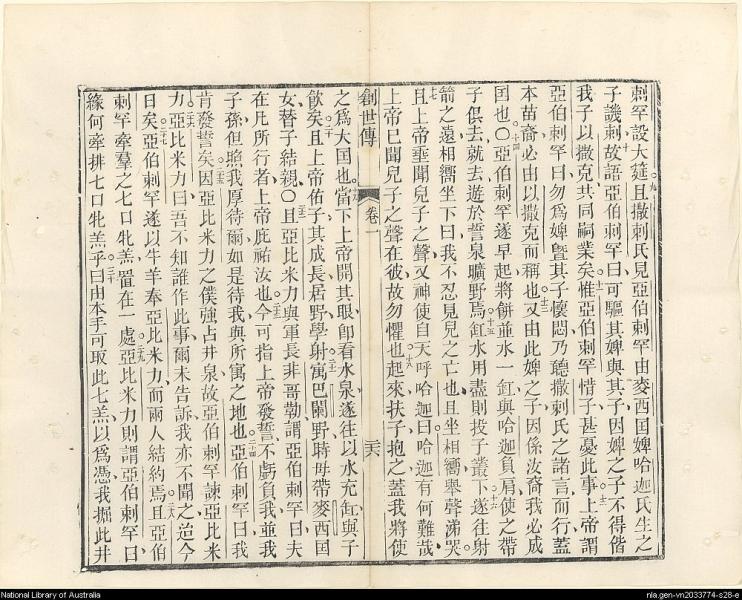 剌罕設大筵且撒剌氏見亞伯剌罕由麥西國婢哈迦氏生之
子譏刺故語亞伯剌罕曰可驅其婢與其子因婢之子不得偕
我子以撒克共同嗣業矣惟亞伯剌罕惜子甚憂此事上帝謂
亞伯剌罕曰勿為婢曁其子懷悶乃聽撒剌氏之諸言而行蓋
本苗裔必由以撒克而稱也又由此婢之子因係汝裔我必成
囯也○亞伯剌罕遂早起將餅並水一缸與哈迦負肩使之帶
子俱去就去遊於誓泉曠野焉缸水用盡則投子叢下遂往射
箭之遠相嚮坐下曰我不忍見兒之亡也且坐相嚮舉聲涕哭
且上帝垂聞兒子之聲又神使自天呼哈迦曰哈迦有何難哉
上帝已聞兒子之聲在彼故勿懼也起來扶子抱之蓋我將使
創世傳 卷一 二六
之為大囯也當下上帝開其眼卽看水泉遂往以水充缸與子
飲矣且上帝佑子其成長居野學射寓巴闌野時母帶麥西囯
女替子結親○且亞比米力與軍長非哥勒謂亞伯剌罕曰夫
在凡所行者上帝庇祐汝也今可指上帝發誓不虧負我並我
子孫但照我厚待爾如是待我與所寓之地也亞伯剌罕曰我
肯發誓矣因亞比米力之僕強占井泉故亞伯剌罕諫亞比米
力亞比米力曰吾不知誰作此事爾未告訴我亦不聞之迨今
日矣亞伯剌罕遂以牛羊奉亞比米力而兩人結約焉且亞伯
剌罕牽羣之七口牝羔置在一處亞比米力則謂亞伯剌罕曰
緣何牽排七口牝羔乎曰由本手可取此七羔以為憑我掘此井
National Library of Australia
nla.gen-vn2033774-s28-e